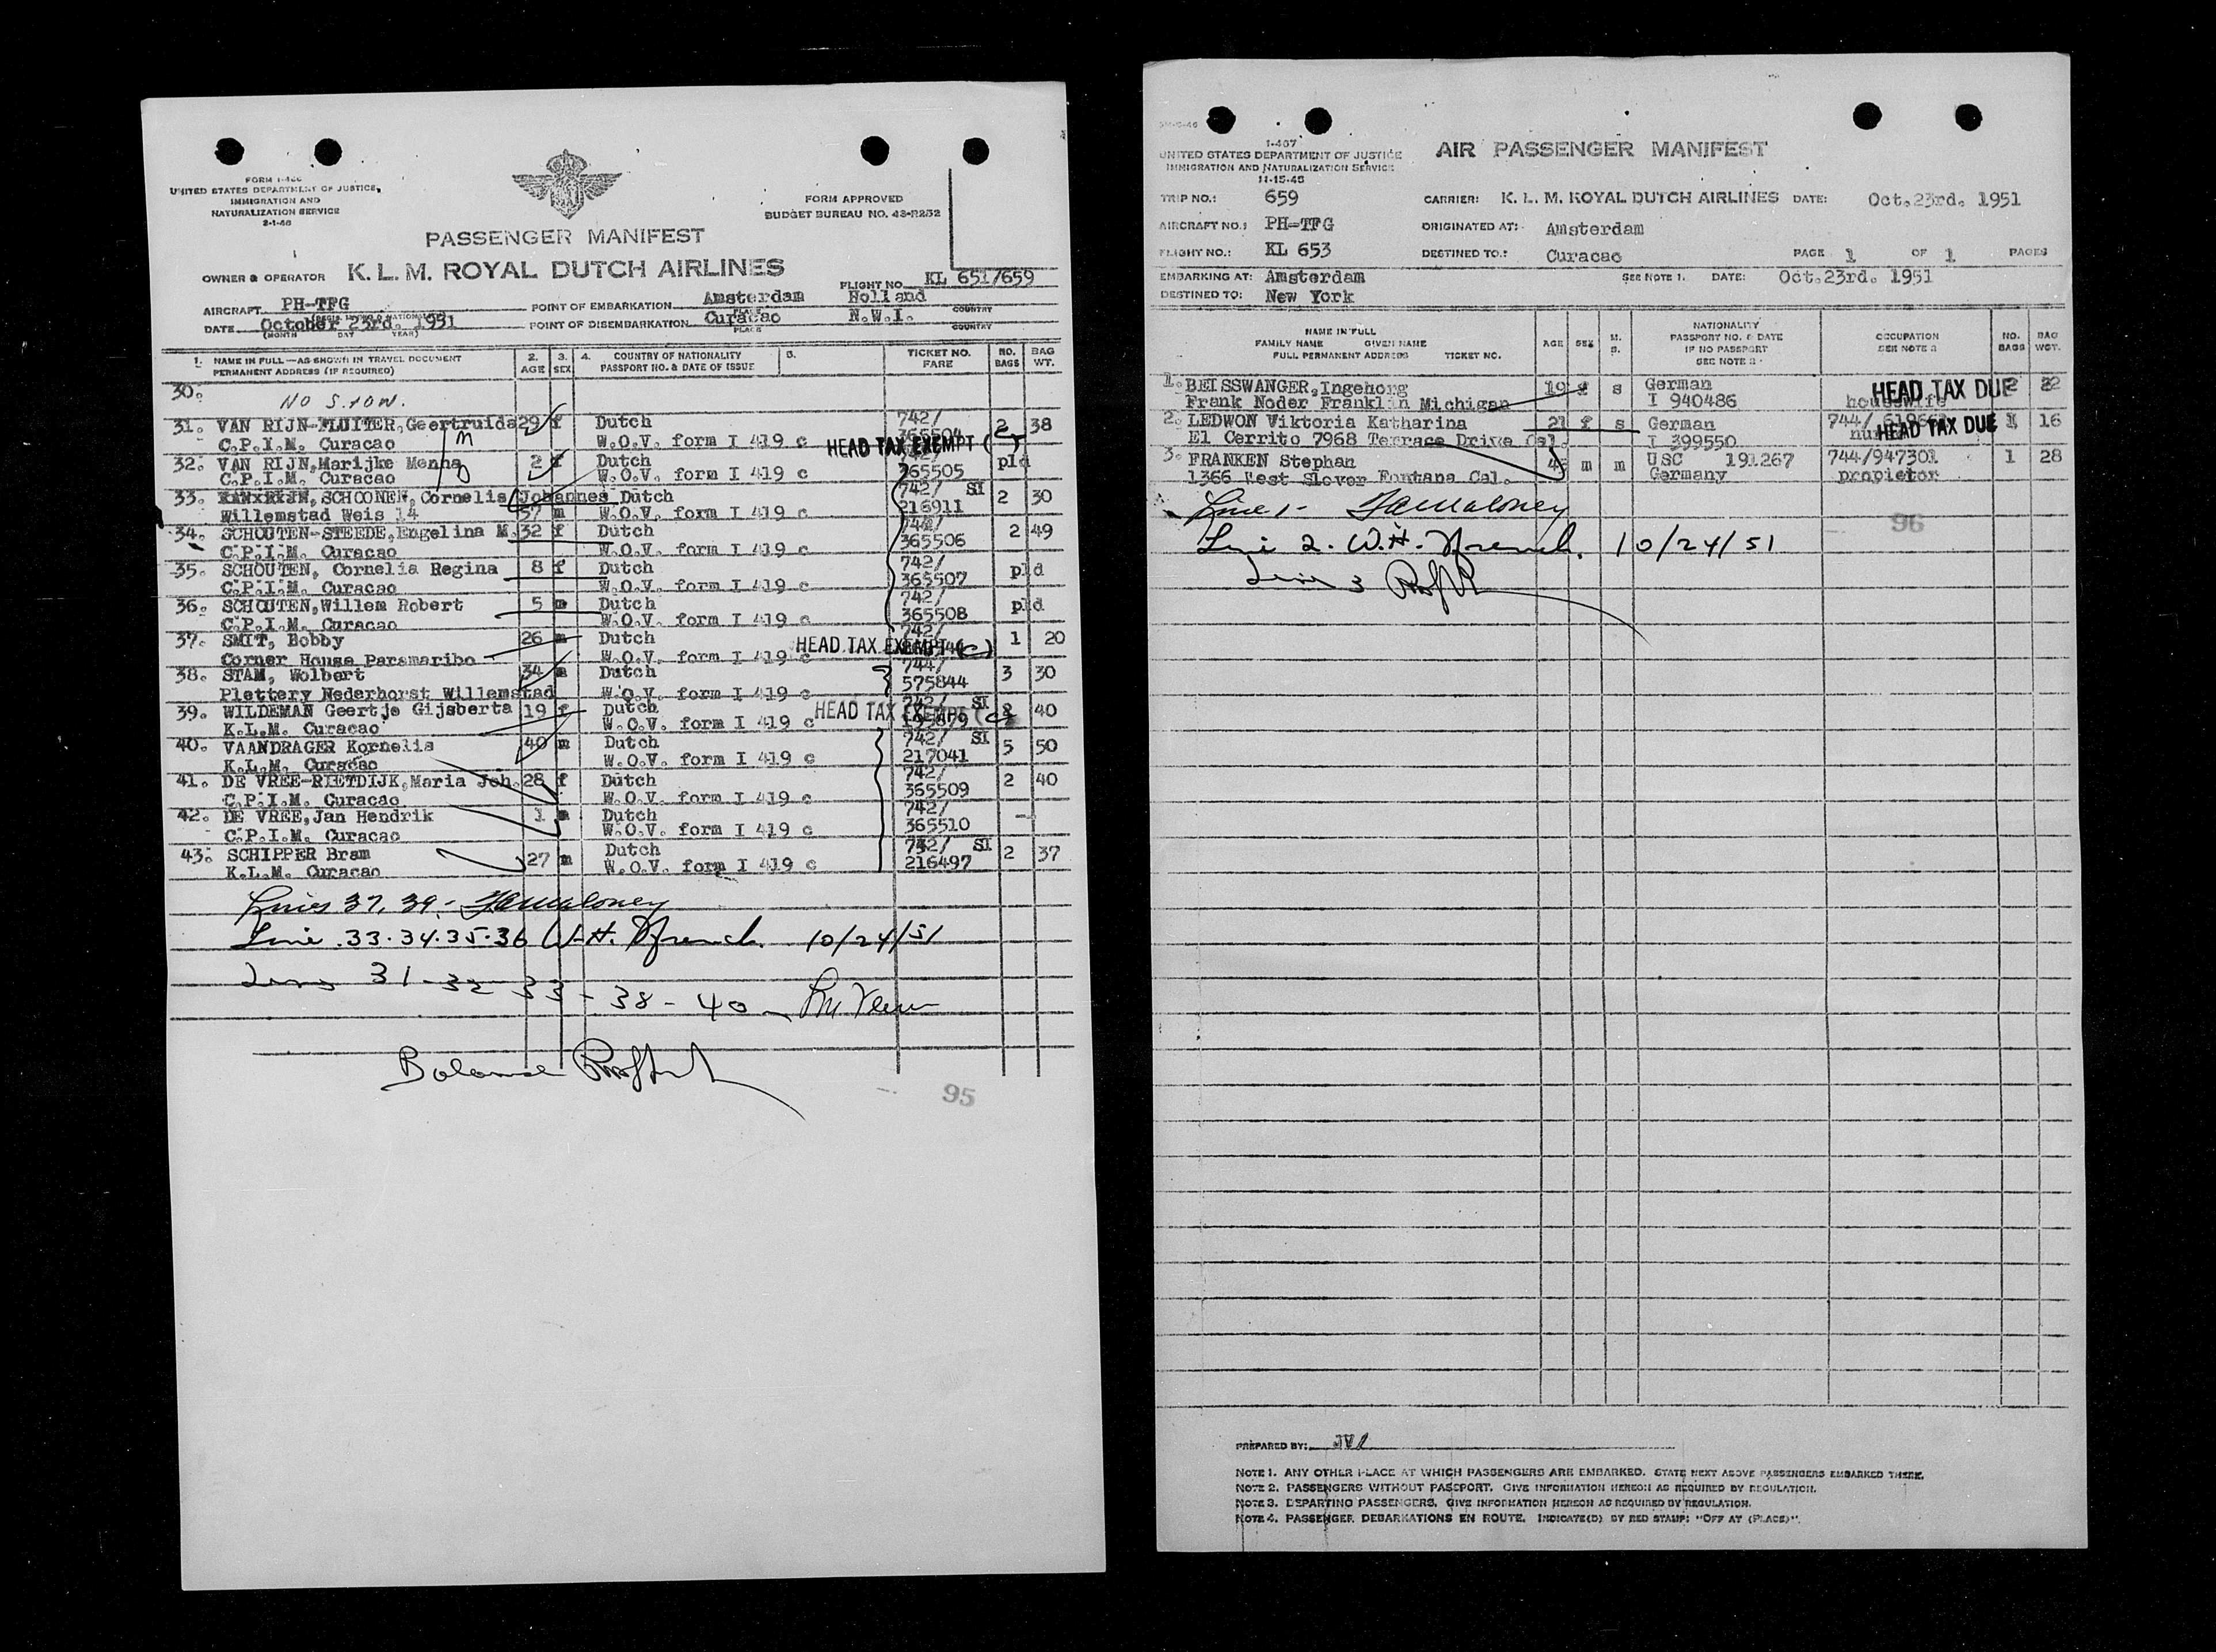 FORM I-466
UNITED STATES DEPARTMENT OF JUSTICE,
IMMIGRATION AND
NATURALIZATION SERVICE
2-1-46
FORM APPROVED
BUDGET BUREAU NO. 43-R252
PASSENGER MANIFEST
OWNER & OPERATOR K. L. M. ROYAL DUTCH AIRLINES
FLIGHT NO. KL 651/659
AIRCRAFT PH-TFG POINT OF EMBARKATION Amsterdam Holland
PLACE COUNTRY
DATE October 23rd. 1951 POINT OF DISEMBARKATION Curacao N.W.I.
(MONTH DAY YEAR) PLACE COUNTRY
1. NAME IN FULL — AS SHOWN IN TRAVEL DOCUMENT 2. 3. 4. COUNTRY OF NATIONALITY 5. TICKET NO. NO. BAG
PERMANENT ADDRESS (IF REQUIRED) AGE SEX PASSPORT NO. & DATE OF ISSUE FARE BAGS WT.
30.
NO SHOW.
31. VAN RIJN-FLUITER, Geertruida 29 f Dutch 742/ 2 38
C.P.I.M. Curacao W.O.V. form I 419 c 365504
HEAD TAX EXEMPT ( )
32. VAN RIJN, Marijke Menna 2 f Dutch 742/ pld
C.P.I.M. Curacao W.O.V. form I 419 c 365505
33. VAN RIJN, SCHOONEN, Cornelis Johannes Dutch 742/ SI 2 30
Willemstad Weis 14 57 m W.O.V. form I 419 c 216911
34. SCHOUTEN-STEEDE, Engelina M. 32 f Dutch 742/ 2 49
C.P.I.M. Curacao W.O.V. form I 419 c 365506
35. SCHOUTEN, Cornelia Regina 8 f Dutch 742/ pld
C.P.I.M. Curacao W.O.V. form I 419 c 365507
36. SCHOUTEN, Willem Robert 5 m Dutch 742/ pld
C.P.I.M. Curacao W.O.V. form I 419 c 365508
37. SMIT, Bobby 26 m Dutch 742/ 1 20
Corner House Paramaribo W.O.V. form I 419 c
HEAD TAX EXEMPT (C)
38. STAM, Wolbert 34 m Dutch 744/ 3 30
Plettery Nederhorst Willemstad W.O.V. form I 419 c 575844
39. WILDEMAN Geertje Gijsberta 19 f Dutch 742/ SI 2 40
K.L.M. Curacao W.O.V. form I 419 c 195879
HEAD TAX EXEMPT (C)
40. VAANDRAGER Kornelis 40 m Dutch 742/ SI 5 50
K.L.M. Curacao W.O.V. form I 419 c 217041
41. DE VREE-RIETDIJK, Maria Joh. 28 f Dutch 742/ 2 40
C.P.I.M. Curacao W.O.V. form I 419 c 365509
42. DE VREE, Jan Hendrik 1 m Dutch 742/ -
C.P.I.M. Curacao W.O.V. form I 419 c 365510
43. SCHIPPER Bram 27 m Dutch 742/ SI 2 37
K.L.M. Curacao W.O.V. form I 419 c 216497
Lines 37, 39 - Maloney
Line 33.34.35.36 W.H. French. 10/24/51
Lines 31-32 33-38-40
Balance
95
I-467
UNITED STATES DEPARTMENT OF JUSTICE
IMMIGRATION AND NATURALIZATION SERVICE
11-15-45
AIR PASSENGER MANIFEST
TRIP NO.: 659 CARRIER: K. L. M. ROYAL DUTCH AIRLINES DATE: Oct.23rd. 1951
AIRCRAFT NO.: PH-TFG ORIGINATED AT: Amsterdam
FLIGHT NO.: KL 653 DESTINED TO.: Curacao PAGE 1 OF 1 PAGES
EMBARKING AT: Amsterdam SEE NOTE 1. DATE: Oct.23rd. 1951
DESTINED TO: New York
NAME IN FULL
FAMILY NAME GIVEN NAME
FULL PERMANENT ADDRESS TICKET NO.
AGE SEX M. S.
NATIONALITY
PASSPORT NO. & DATE
IF NO PASSPORT
SEE NOTE 2
OCCUPATION
SEE NOTE 3
NO. BAGS BAG WGT.
1. BEISSWANGER, Ingeborg 19 f s German 2 22
Frank Noder Franklin Michigan I 940486 housewife
HEAD TAX DUE
2. LEDWON Viktoria Katharina 21 f s German 744/ 1 16
El Cerrito 7968 Terrace Drive Cal. I 399550
HEAD TAX DUE
3. FRANKEN Stephan m m USC 191267 744/947301 1 28
1366 West Slover Fontana Cal. Germany propietor
Line 1 - Maloney
Line 2. W.H. French. 10/24/51
Line 3
96
PREPARED BY:
NOTE 1. ANY OTHER PLACE AT WHICH PASSENGERS ARE EMBARKED. STATE NEXT ABOVE PASSENGERS EMBARKED THERE.
NOTE 2. PASSENGERS WITHOUT PASSPORT. GIVE INFORMATION HEREON AS REQUIRED BY REGULATION.
NOTE 3. DEPARTING PASSENGERS. GIVE INFORMATION HEREON AS REQUIRED BY REGULATION.
NOTE 4. PASSENGER DEBARKATIONS EN ROUTE. INDICATE(D) BY RED STAMP: "OFF AT (PLACE)".